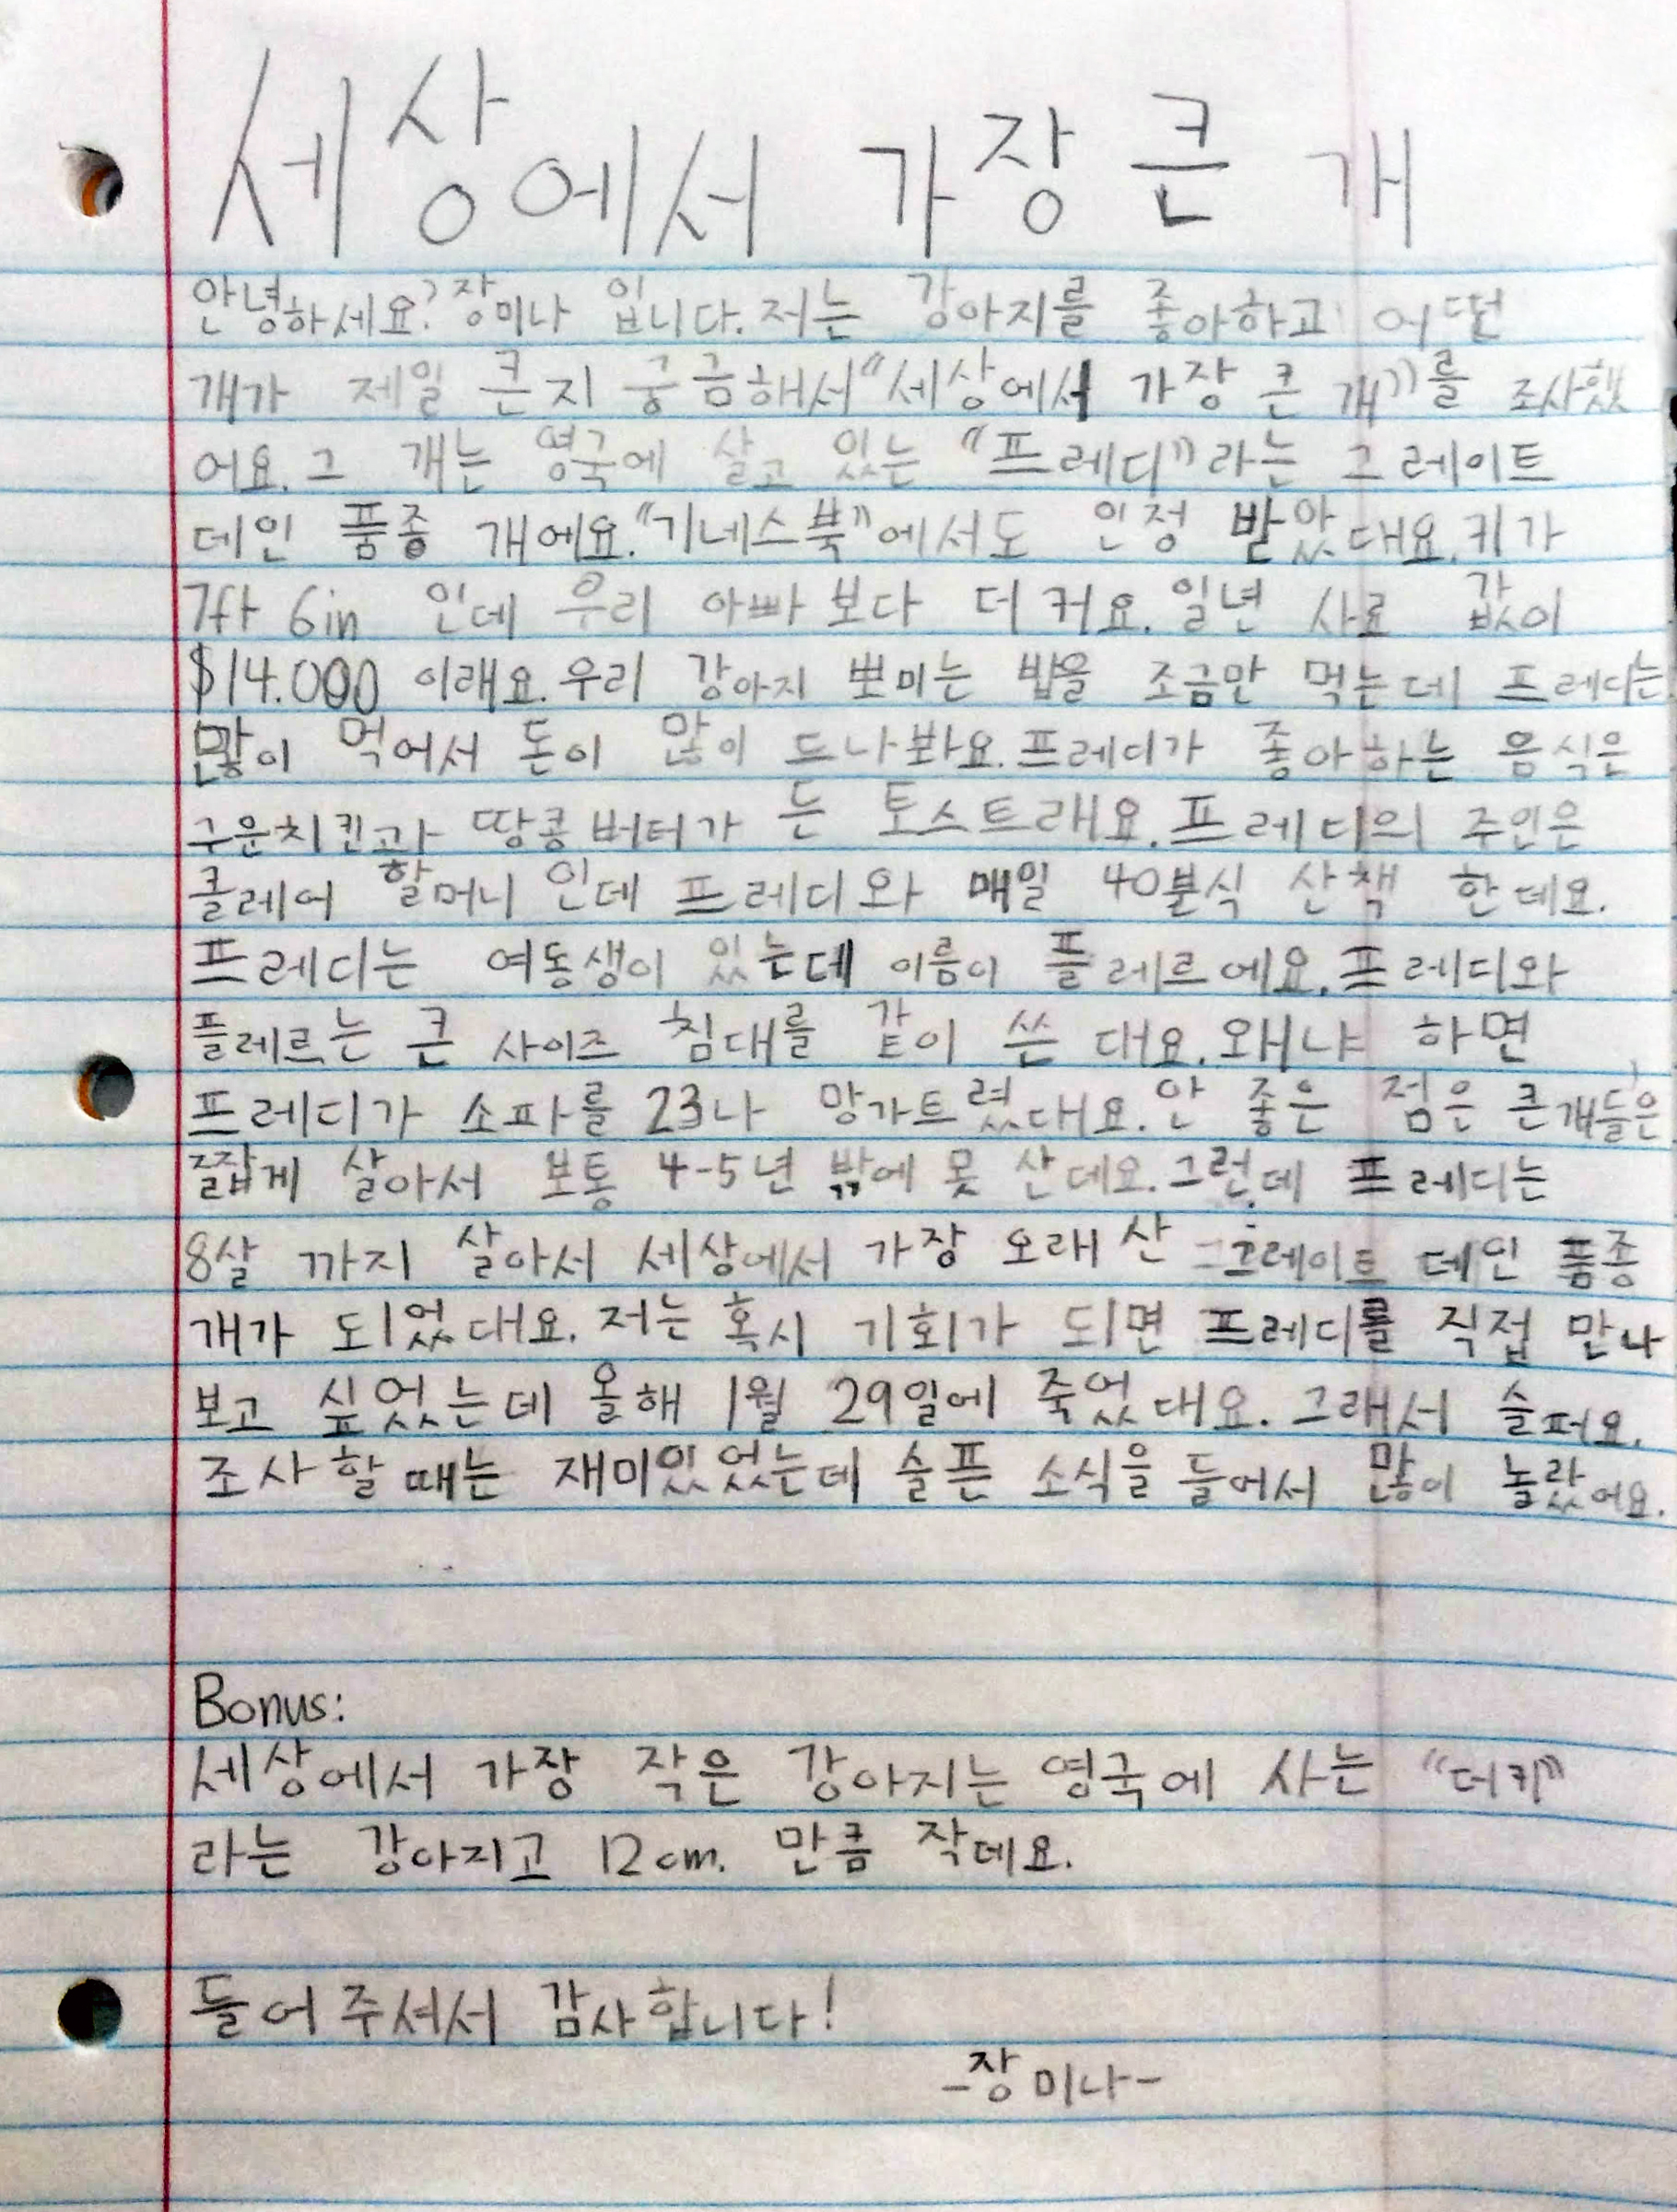 세상에서 가장 큰 개
안녕하세요? 장미나 입니다. 저는 강아지를 좋아하고 어떤
개가 제일 큰지 궁금해서 "세상에서 가장 큰 개"를 조사했
어요. 그 개는 영국에 살고 있는 "프레디"라는 그레이트
데인 품종 개에요. "기네스북"에서도 인정 받았대요. 키가
7ft 6in 인데 우리 아빠 보다 더 커요. 일년 사료 값이
$14.000 이래요. 우리 강아지 뽀미는 밥을 조금만 먹는데 프레디는
많이 먹어서 돈이 많이 드나봐요. 프레디가 좋아하는 음식은
구운치킨과 땅콩버터가 든 토스트래요. 프레디의 주인은
클레어 할머니 인데 프레디와 매일 40분식 산책 한데요.
프레디는 여동생이 있는데 이름이 플레르에요. 프레디와
플레르는 큰 사이즈 침대를 같이 쓴 대요. 왜냐 하면
프레디가 소파를 23나 망가트렸대요. 안 좋은 점은 큰개들은
짧게 살아서 보통 4-5년 밖에 못 산데요. 그런데 프레디는
8살 까지 살아서 세상에서 가장 오래 산 그레이트 데인 품종
개가 되었대요. 저는 혹시 기회가 되면 프레디를 직접 만나
보고 싶었는데 올해 1월 29일에 죽었대요. 그래서 슬퍼요.
조사할 때는 재미있었는데 슬픈 소식을 들어서 많이 놀랐어요.
Bonus:
세상에서 가장 작은 강아지는 영국에 사는 "더키"
라는 강아지고 12cm. 만큼 작데요.
들어주셔서 감사합니다!
-장미나-